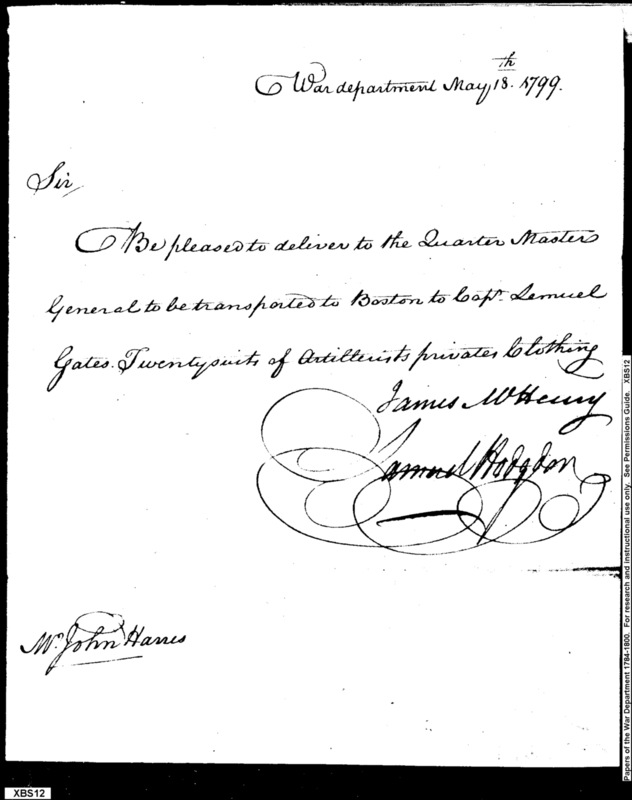 War department May 18.th 1799.
Sir
Be pleased to deliver to the Quarter Master
General to be transported to Boston to Capt. Lemuel
Gates. Twenty suits of Artillerists privates Clothing
James McHenry
Samuel Hodgdon
Mr. John Harris
XBS12
Papers of the War Department 1784-1800. For research and instructional use only. See Permissions Guide. XBS12